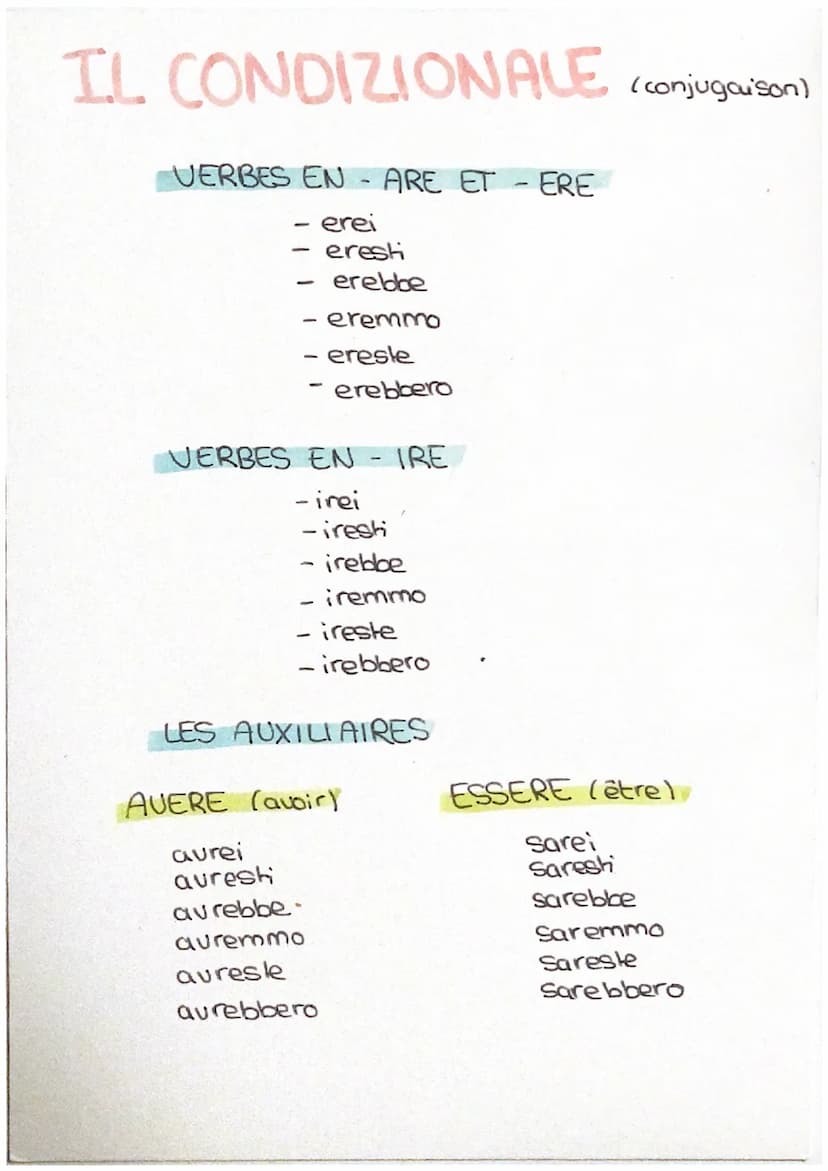 IL CONDIZIONALE (conjugaison)
VERBES EN - ARE ET - ERE
- erei
- eresti
- erebbe
- eremmo
- ereste
- erebbero
VERBES EN - IRE
- irei
- iresti
- irebbe
- iremmo
- ireste
- irebbero
LES AUXILIAIRES
AVERE (avoir)
avrei
avresti
avrebbe
avremmo
avreste
avrebbero
ESSERE (être)
sarei
saresti
sarebbe
saremmo
sareste
sarebbero